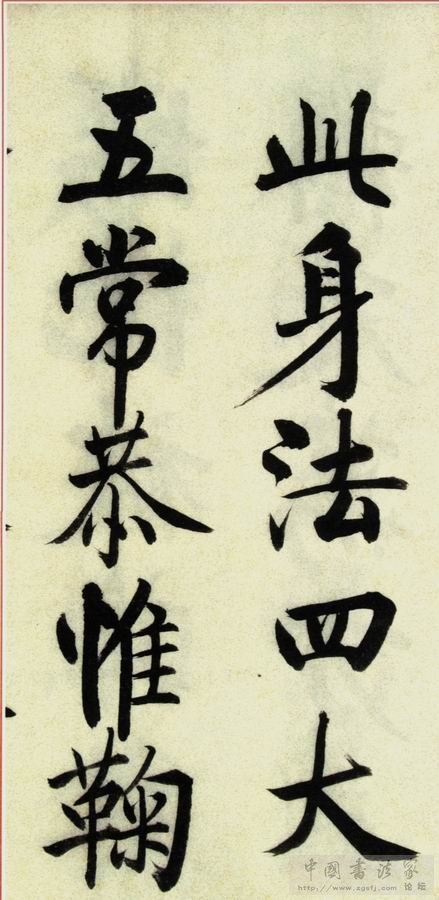 此身法四大
五常恭惟鞠
中國書法家
http://www.zgsfj.com 论坛